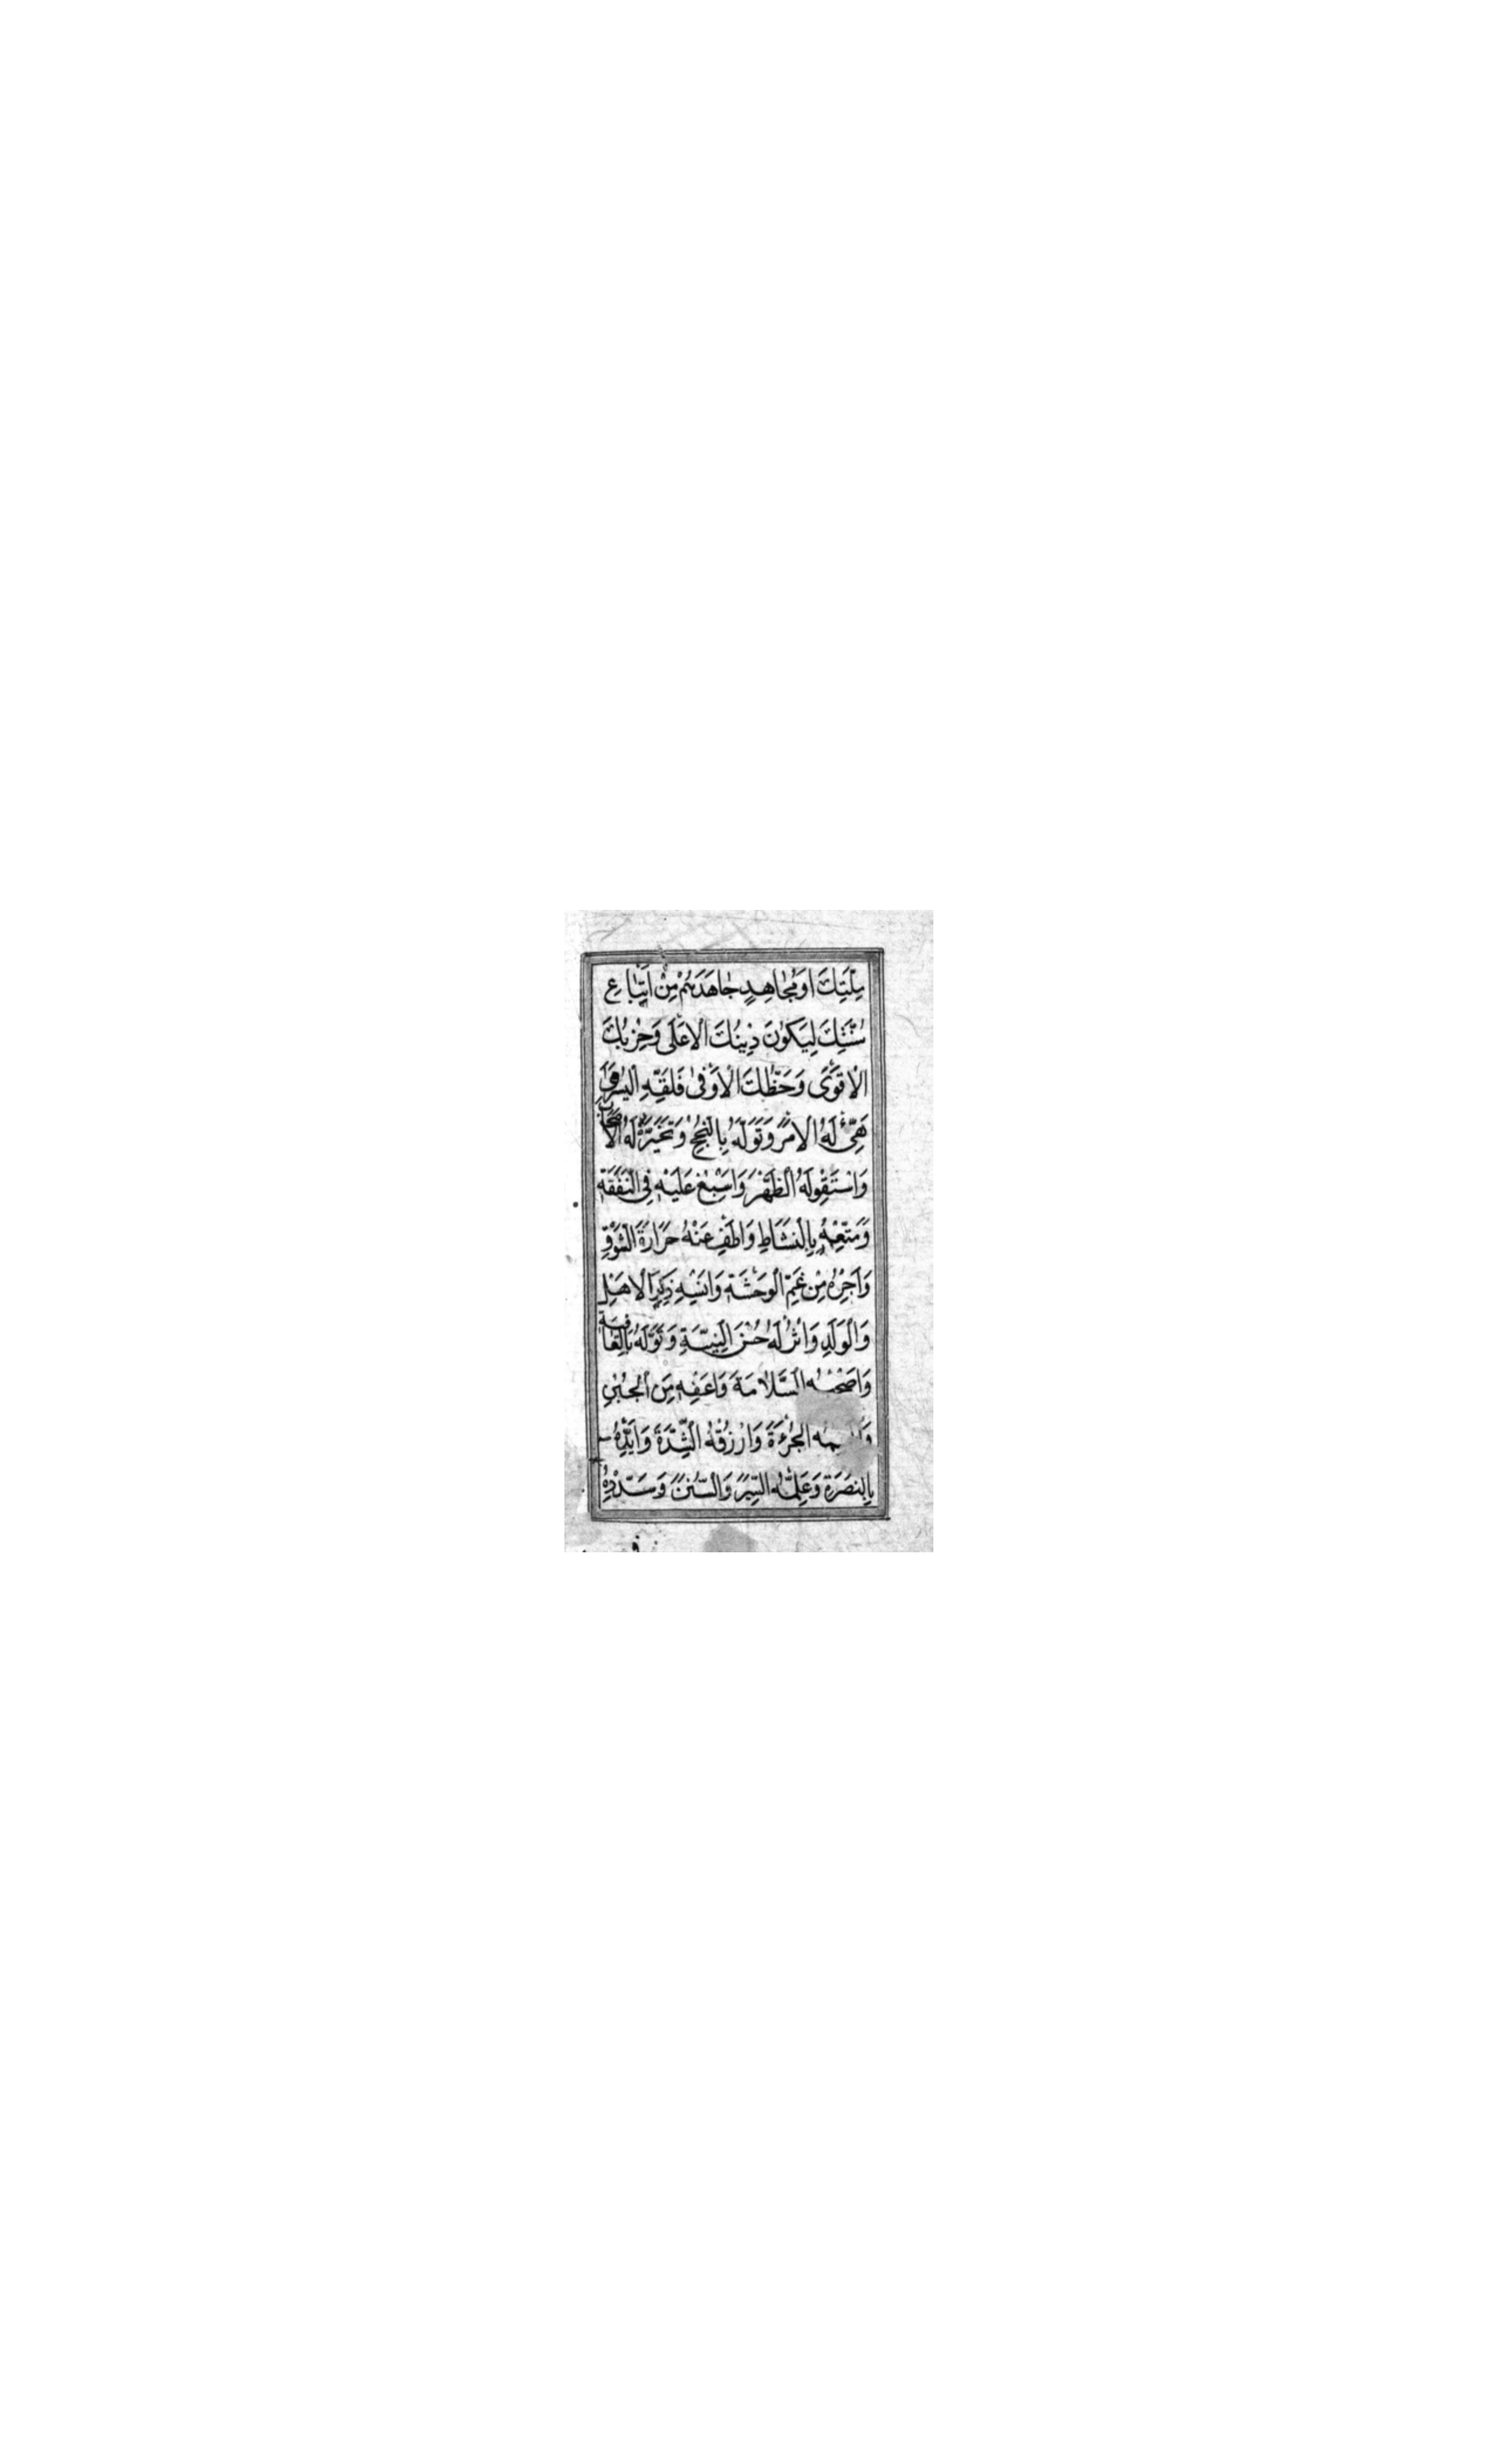 مِلَّتِكَ اَوْ مُجَاهِدٍ جَاهَدَهُمْ مِنْ اَتْبَاعِ
سُنَّتِكَ لِيَكُونَ دِينُكَ الْاَعْلَى وَحِزْبُكَ
الْاَقْوَى وَحَظُّكَ الْاَوْفَى فَلَقِّهِ الْيُسْرَ وَ
هَيِّئْ لَهُ الْاَمْرَ وَتَوَلَّهُ بِالنُّجْحِ وَتَخَيَّرْ لَهُ الْاَصْحَابَ
وَاسْتَقْوِ لَهُ الظَّهْرَ وَاَسْبِغْ عَلَيْهِ فِى النَّفَقَةِ
وَمَتِّعْهُ بِالنَّشَاطِ وَاَطْفِ عَنْهُ حَرَارَةَ الشَّوْقِ
وَاَجِرْهُ مِنْ غَمِّ الْوَحْشَةِ وَاَنْسِهِ ذِكْرَ الْاَهْلِ
وَالْوَلَدِ وَاْثُرْ لَهُ حُسْنَ النِّيَّةِ وَتَوَلَّهُ بِالْعَافِيَةِ
وَاَصْحِبْهُ السَّلَامَةَ وَاَعْفِهِ مِنَ الْجُبْنِ
الْجُرْءَةَ وَارْزُقْهُ الشِّدَّةَ وَاَيِّدْهُ
بِالنُّصْرَةِ وَعَلِّمْهُ السِّيَرَ وَالسُّنَنَ وَسَدِّدْهُ